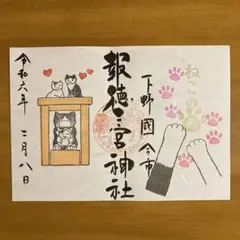 ねこの
下野國今市
報徳二宮神社
令和六年
二月八日